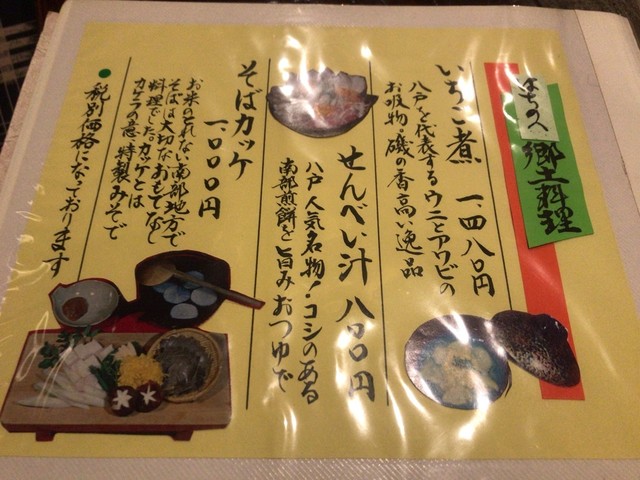 はちのへ郷土料理
いちご煮 一、四八〇円
八戸を代表するウニとアワビの
お吸物。磯の香高い逸品
せんべい汁 八〇〇円
八戸人気名物!コシのある
南部煎餅を旨みおつゆで
そばカッケ
一、〇〇〇円
お米のとれない南部地方で
そばは大切なおもてなし
料理でした。カッケとは
カケラの意 特製みそで
●税別価格になっております